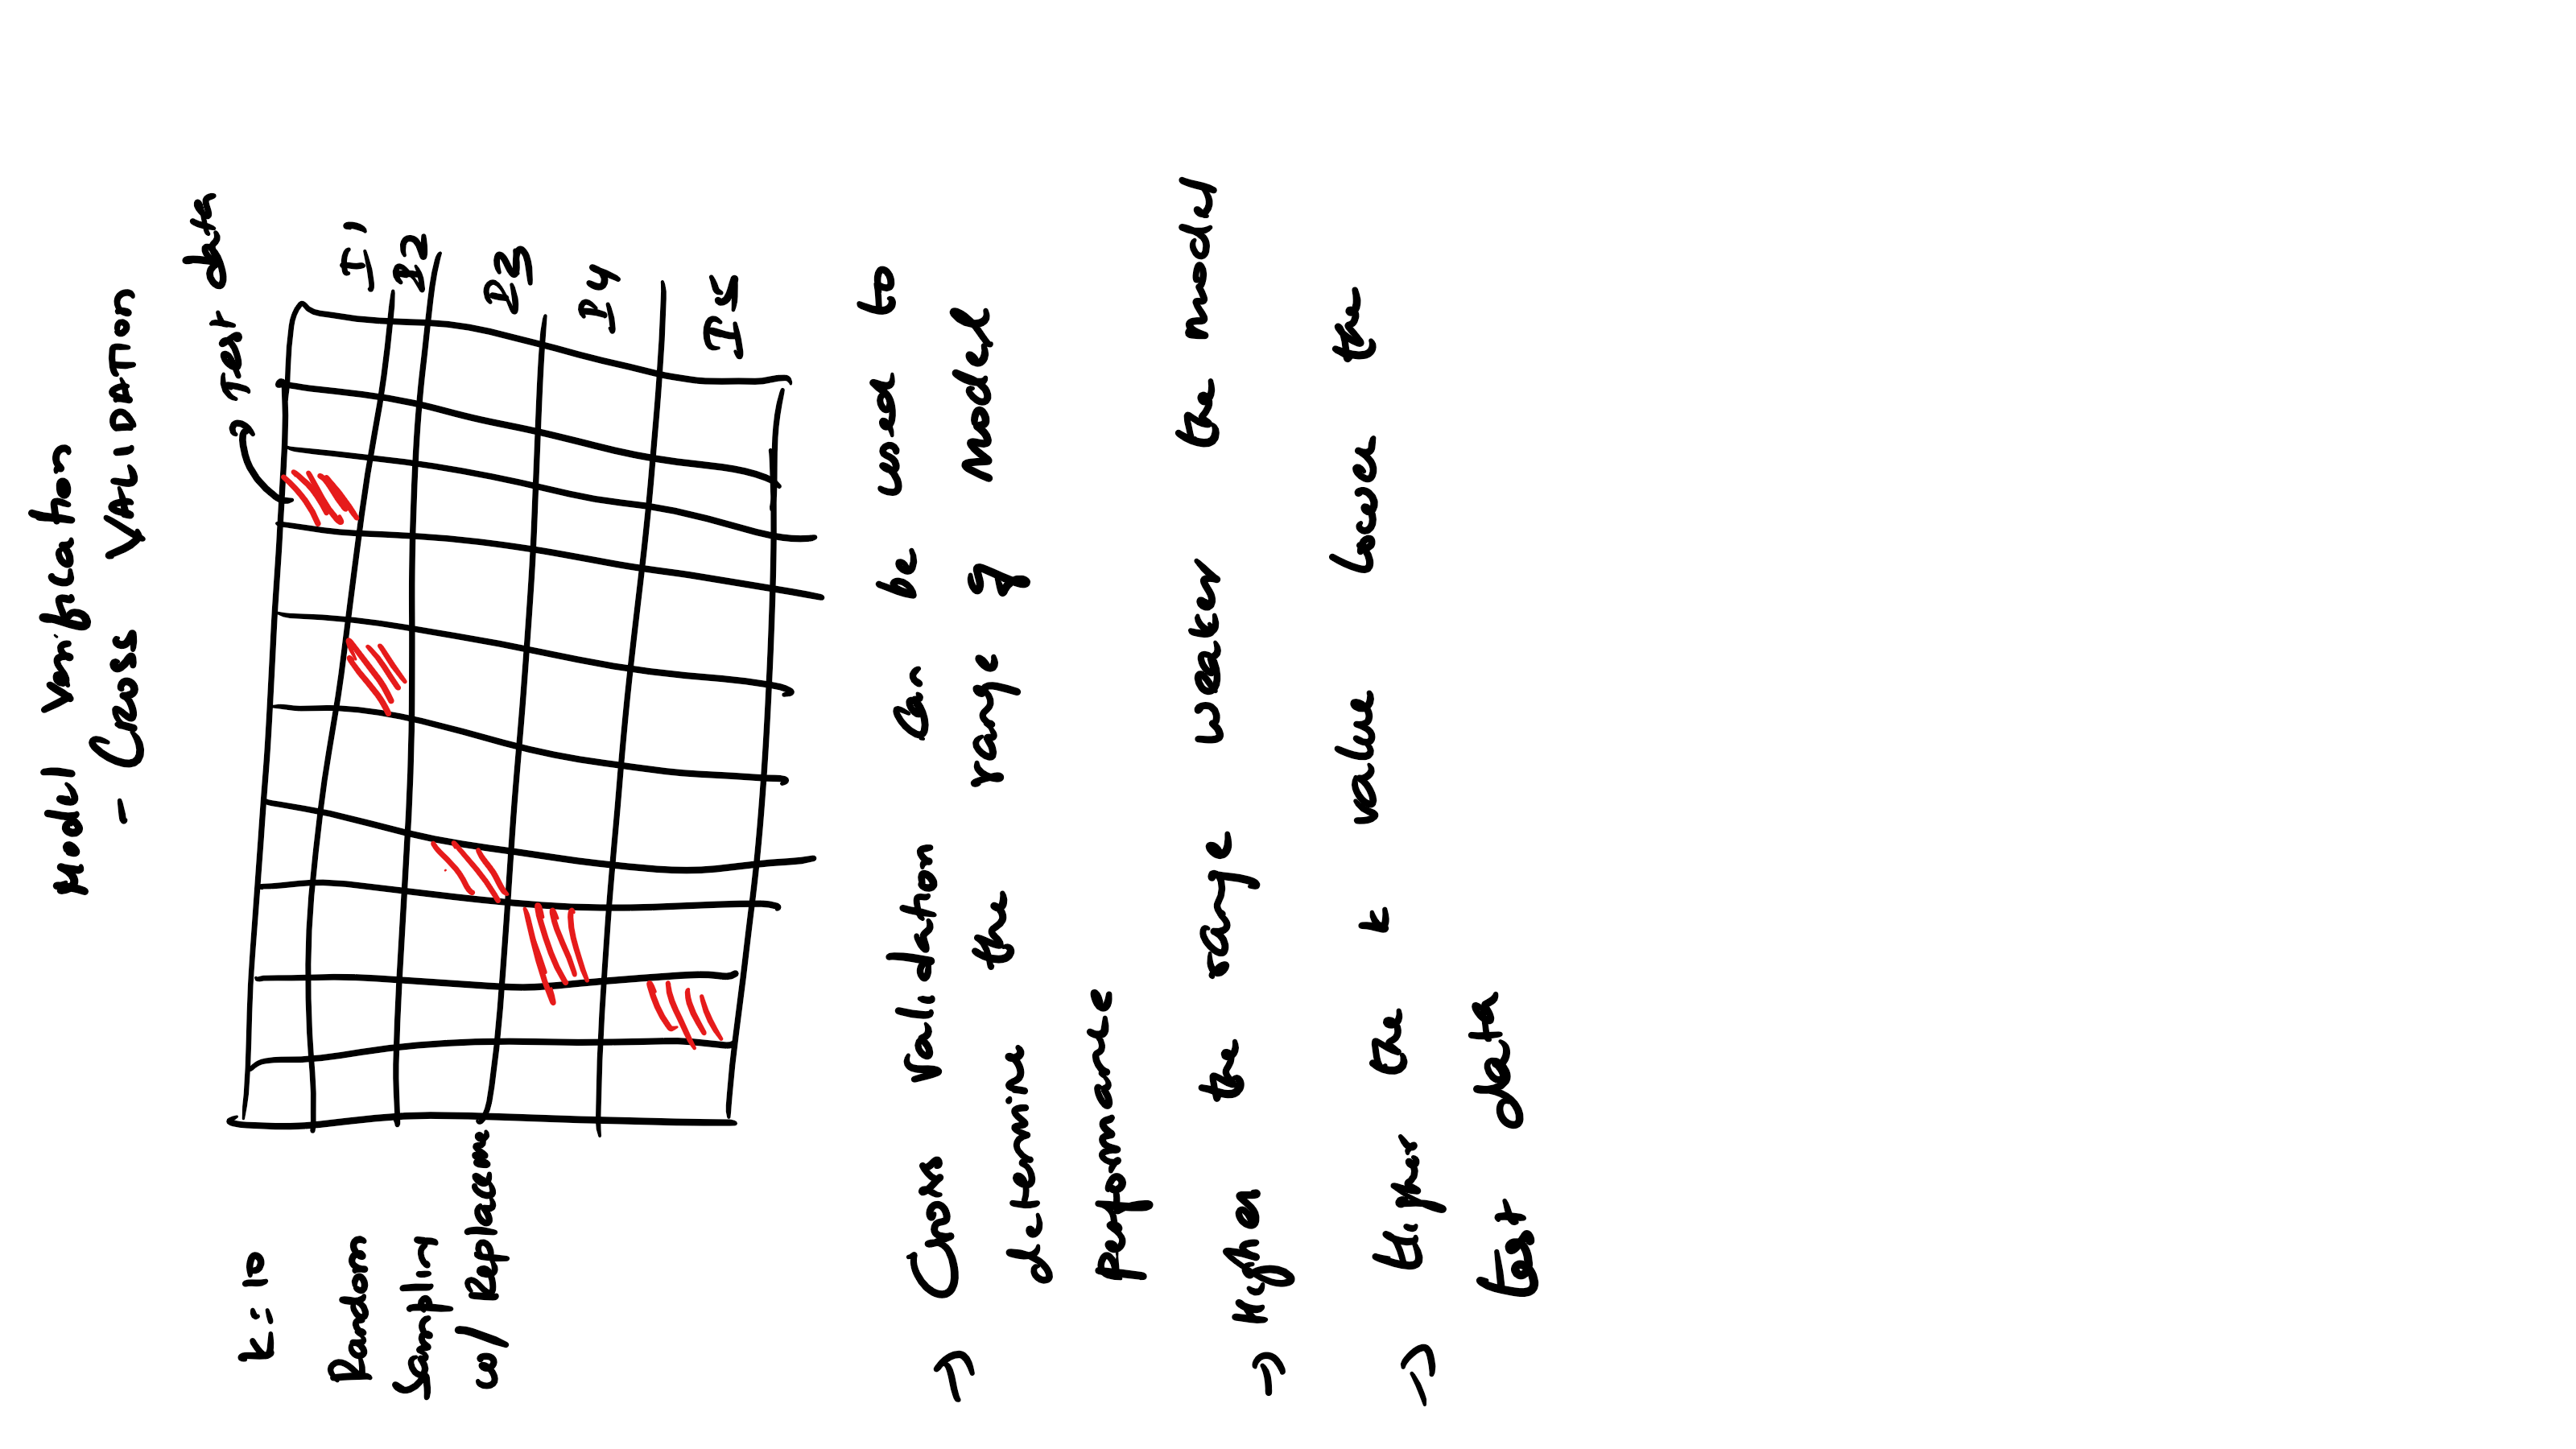 Model Verification
- CROSS VALIDATION
Test data
k=10
Random
Sampling
w/ Replaceme
I1
I2
I3
I4
I5
→ Cross Validation can be used to
determine the range of Model
Performance
→ Higher the range weaker the model
→ Higher the k value lower the
test data